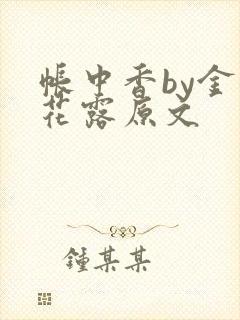 帐中香by金
花露原文
鍾某某